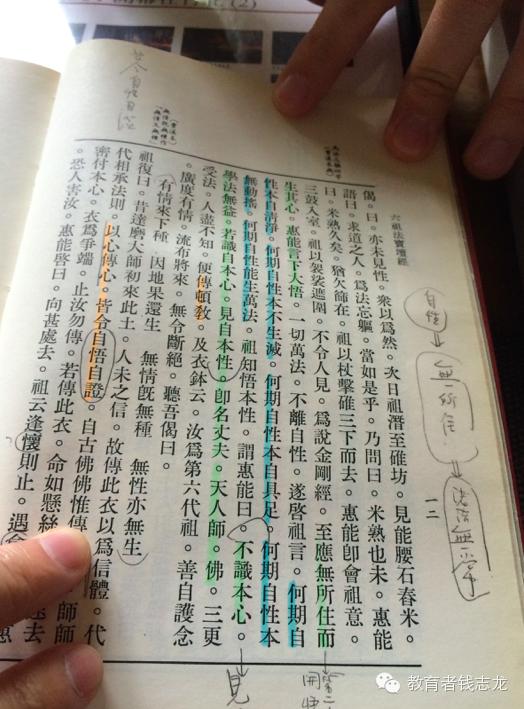 六祖法寶壇經
一二
偈。曰。亦未見性。衆以爲然。次日祖潛至碓坊。見能腰石舂米。
語曰。求道之人。爲法忘軀。當如是乎。乃問曰。米熟也未。惠能
曰。米熟久矣。猶欠篩在。祖以杖擊碓三下而去。惠能卽會祖意。
三鼓入室。祖以袈裟遮圍。不令人見。爲說金剛經。至應無所住而
生其心。惠能言下大悟。一切萬法。不離自性。遂啓祖言。何期自
性本自清淨。何期自性本不生滅。何期自性本自具足。何期自性本
無動搖。何期自性能生萬法。祖知悟本性。謂惠能曰。不識本心。
學法無益。若識自本心。見自本性。卽名丈夫。天人師。佛。三更
受法。人盡不知。便傳頓敎。及衣鉢云。汝爲第六代祖。善自護念
。廣度有情。流布將來。無令斷絕。聽吾偈曰。
有情來下種 因地果還生 無情旣無種 無性亦無生
祖復曰。昔達磨大師初來此土。人未之信。故傳此衣以爲信體。代
代相承法則。以心傳心。皆令自悟自證。自古佛佛惟傳 師師
密付本心。衣爲爭端。止汝勿傳。若傳此衣。命如懸絲 去
。恐人害汝。惠能啓曰。向甚處去。祖云逢懷則止。遇 惠
自性
無所住
見
教育者钱志龙